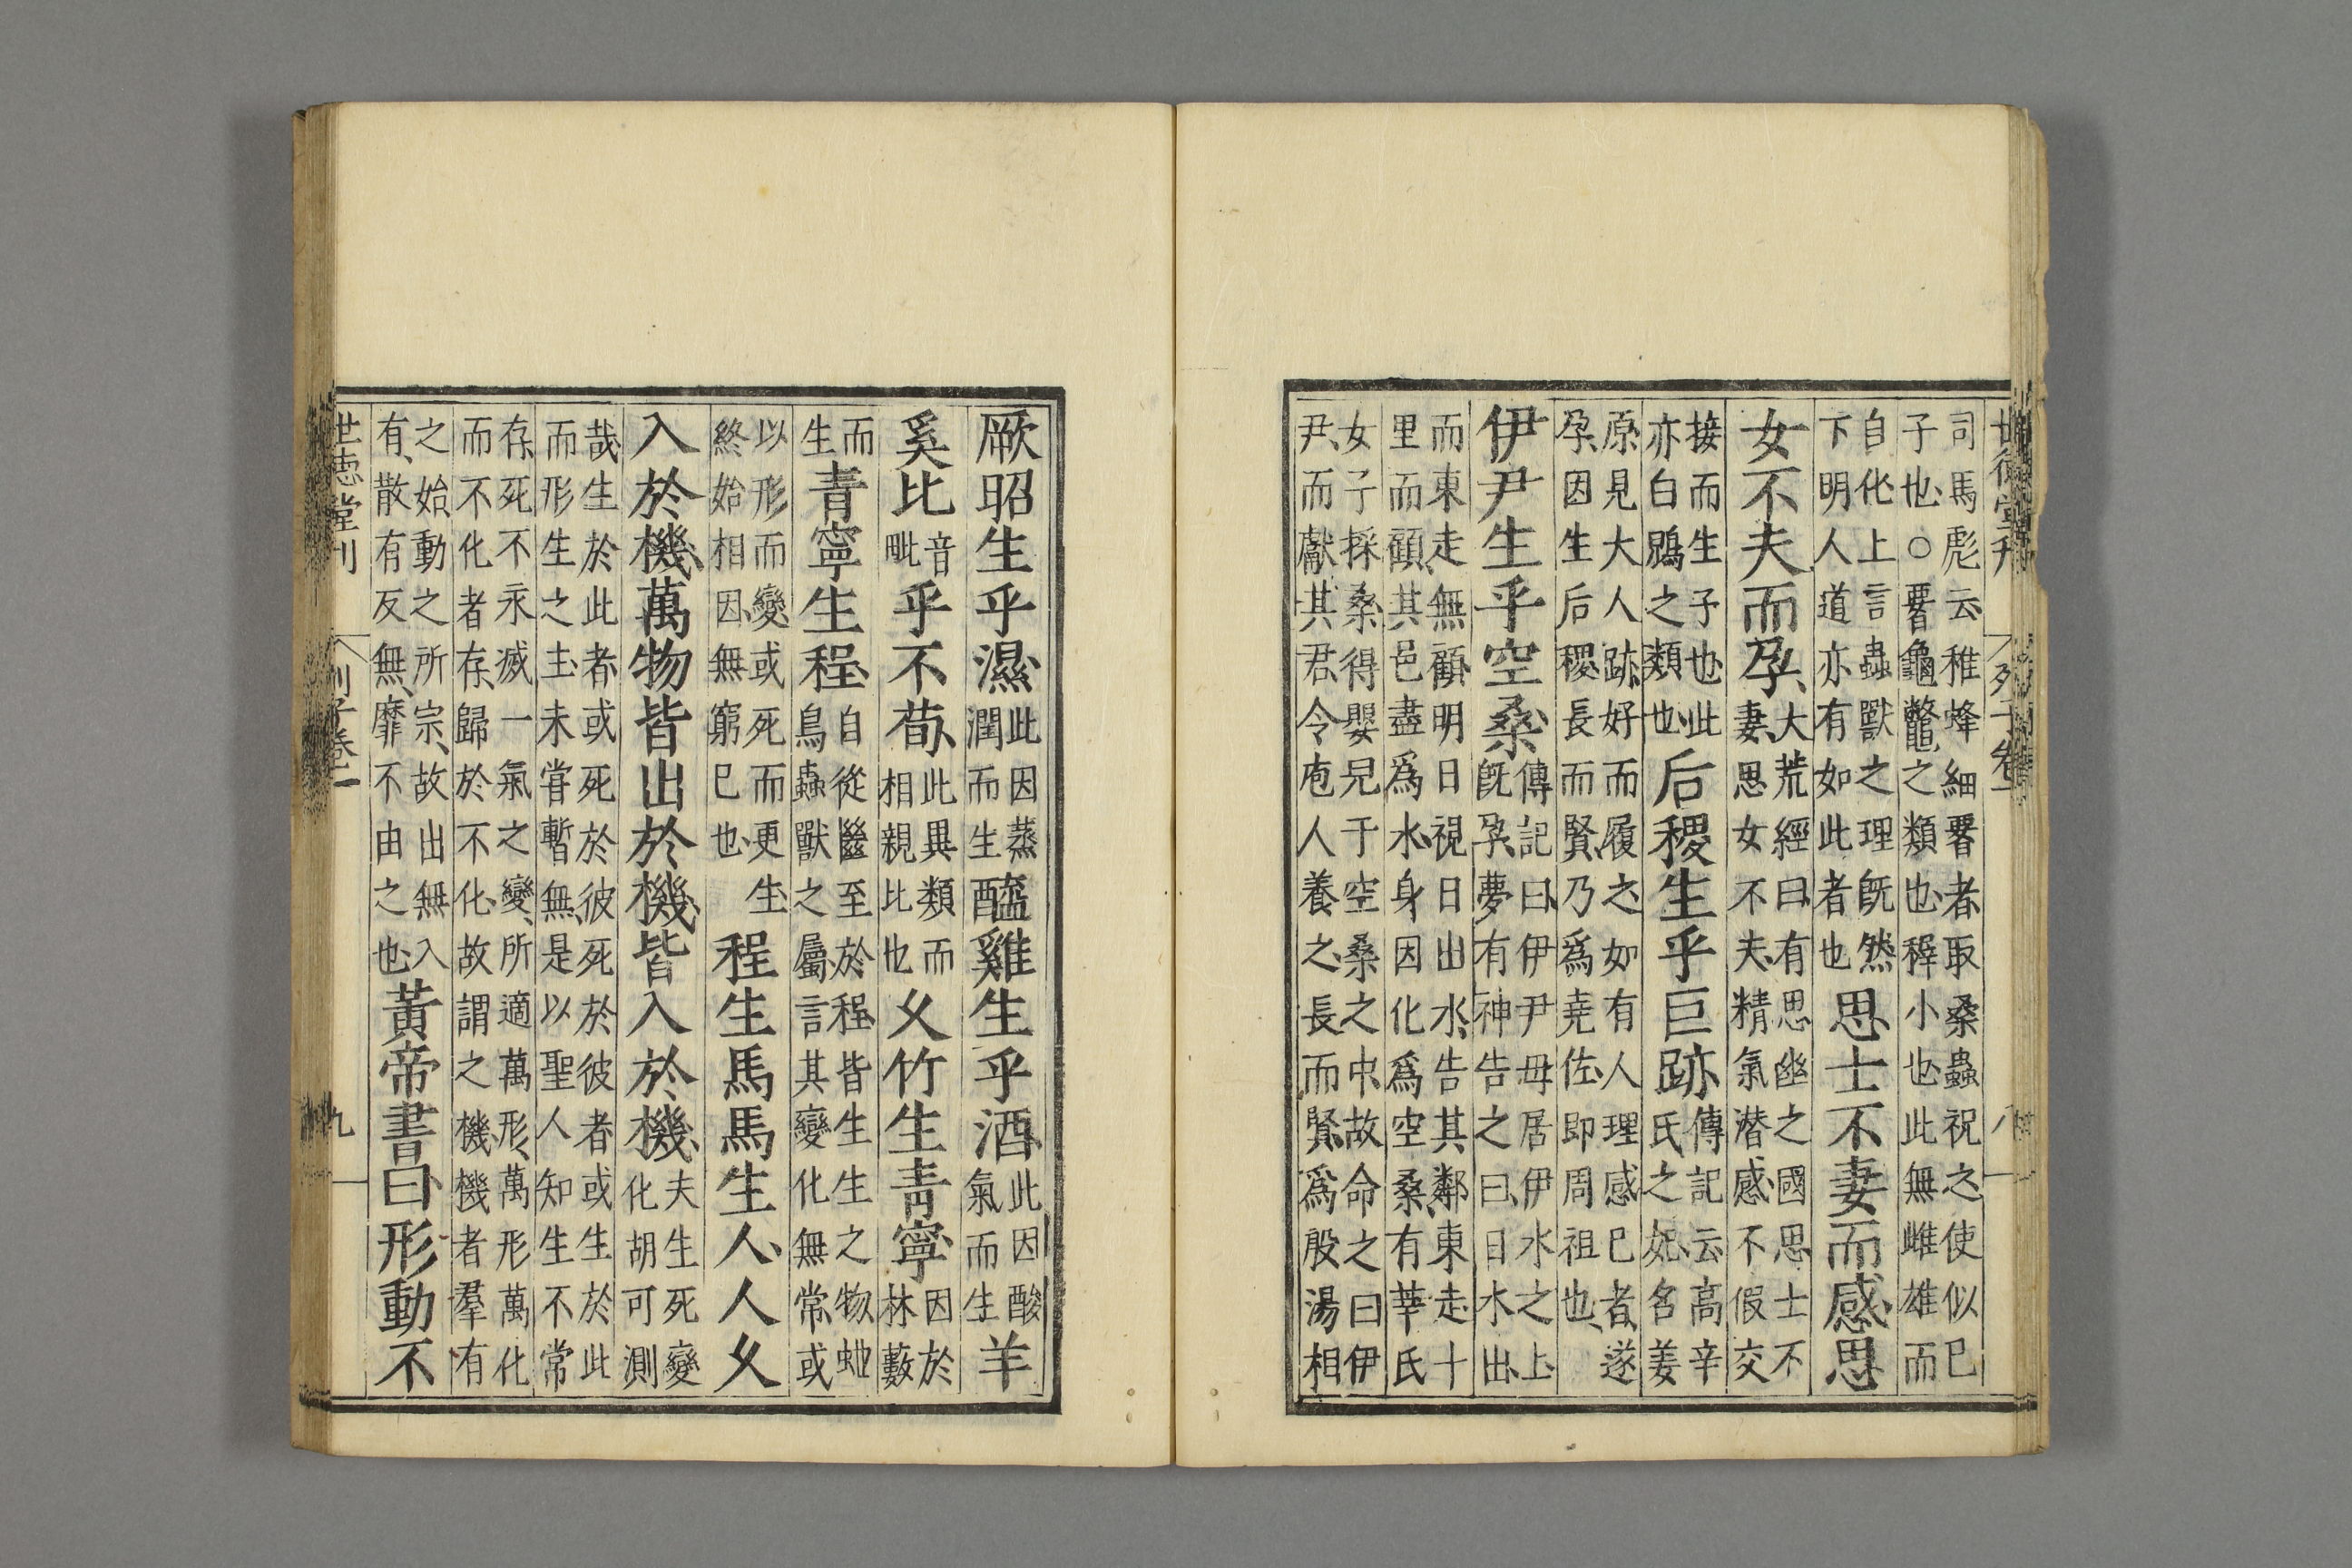 世德堂刊 列子卷一 八
司馬彪云稚蜂細要者取桑蟲祝之使似己
子也○要龜鼈之類也稺小也此無雌雄而
自化上言蟲獸之理既然
下明人道亦有如此者也
思士不妻而感思
女不夫而孕
大荒經曰有思幽之國思士不
妻思女不夫精氣潜感不假交
接而生子也此
亦白鶂之類也
后稷生乎巨跡
傳記云高辛
氏之妃名姜
原見大人跡好而履之如有人理感己者遂
孕因生后稷長而賢乃爲堯佐即周祖也
伊尹生乎空桑
傳記曰伊尹母居伊水之上
既孕夢有神告之曰日水出
而東走無顧明日視日出水告其鄰東走十
里而顧其邑盡爲水身因化爲空桑有莘氏
女子採桑得嬰兒于空桑之中故命之曰伊
尹而獻其君令庖人養之長而賢爲殷湯相
厥昭生乎濕
此因蒸
潤而生
醯雞生乎酒
此因酸
氣而生
羊
奚比
音
毗
乎不荀
此異類而
相親比也
乆竹生青寧
因於
林藪
而
生
青寧生程
自從䋣至於程皆生生之物虵
鳥蟲獸之屬言其變化無常或
以形而變或死而更生
終始相因無窮已也
程生馬馬生人人乆
入於機萬物皆出於機皆入於機
夫生死變
化胡可測
哉生於此者或死於彼死於彼者或生於此
而形生之主未甞暫無是以聖人知生不常
存死不永滅一氣之變所適萬形萬形萬化
而不化者存歸於不化故謂之機機者羣有
之始動之所宗故出無入
有散有反無靡不由之也
黃帝書曰形動不
世德堂刊 列子卷一 九